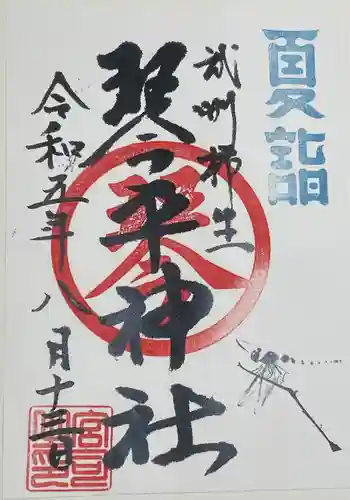 夏詣
武州柿生
琴平神社
金
令和五年八月十三日